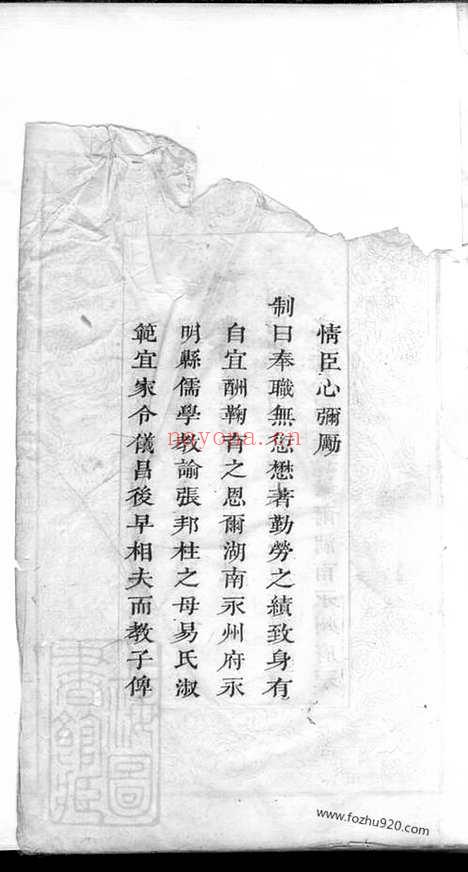 情臣心彌勵
制曰奉職無愆懋著勤勞之績致身有
自宜酬鞠育之恩爾湖南永州府永
明縣儒學教諭張邦柱之母易氏淑
範宜家令儀昌後早相夫而教子俾
nayona.cn
www.fozhu920.com